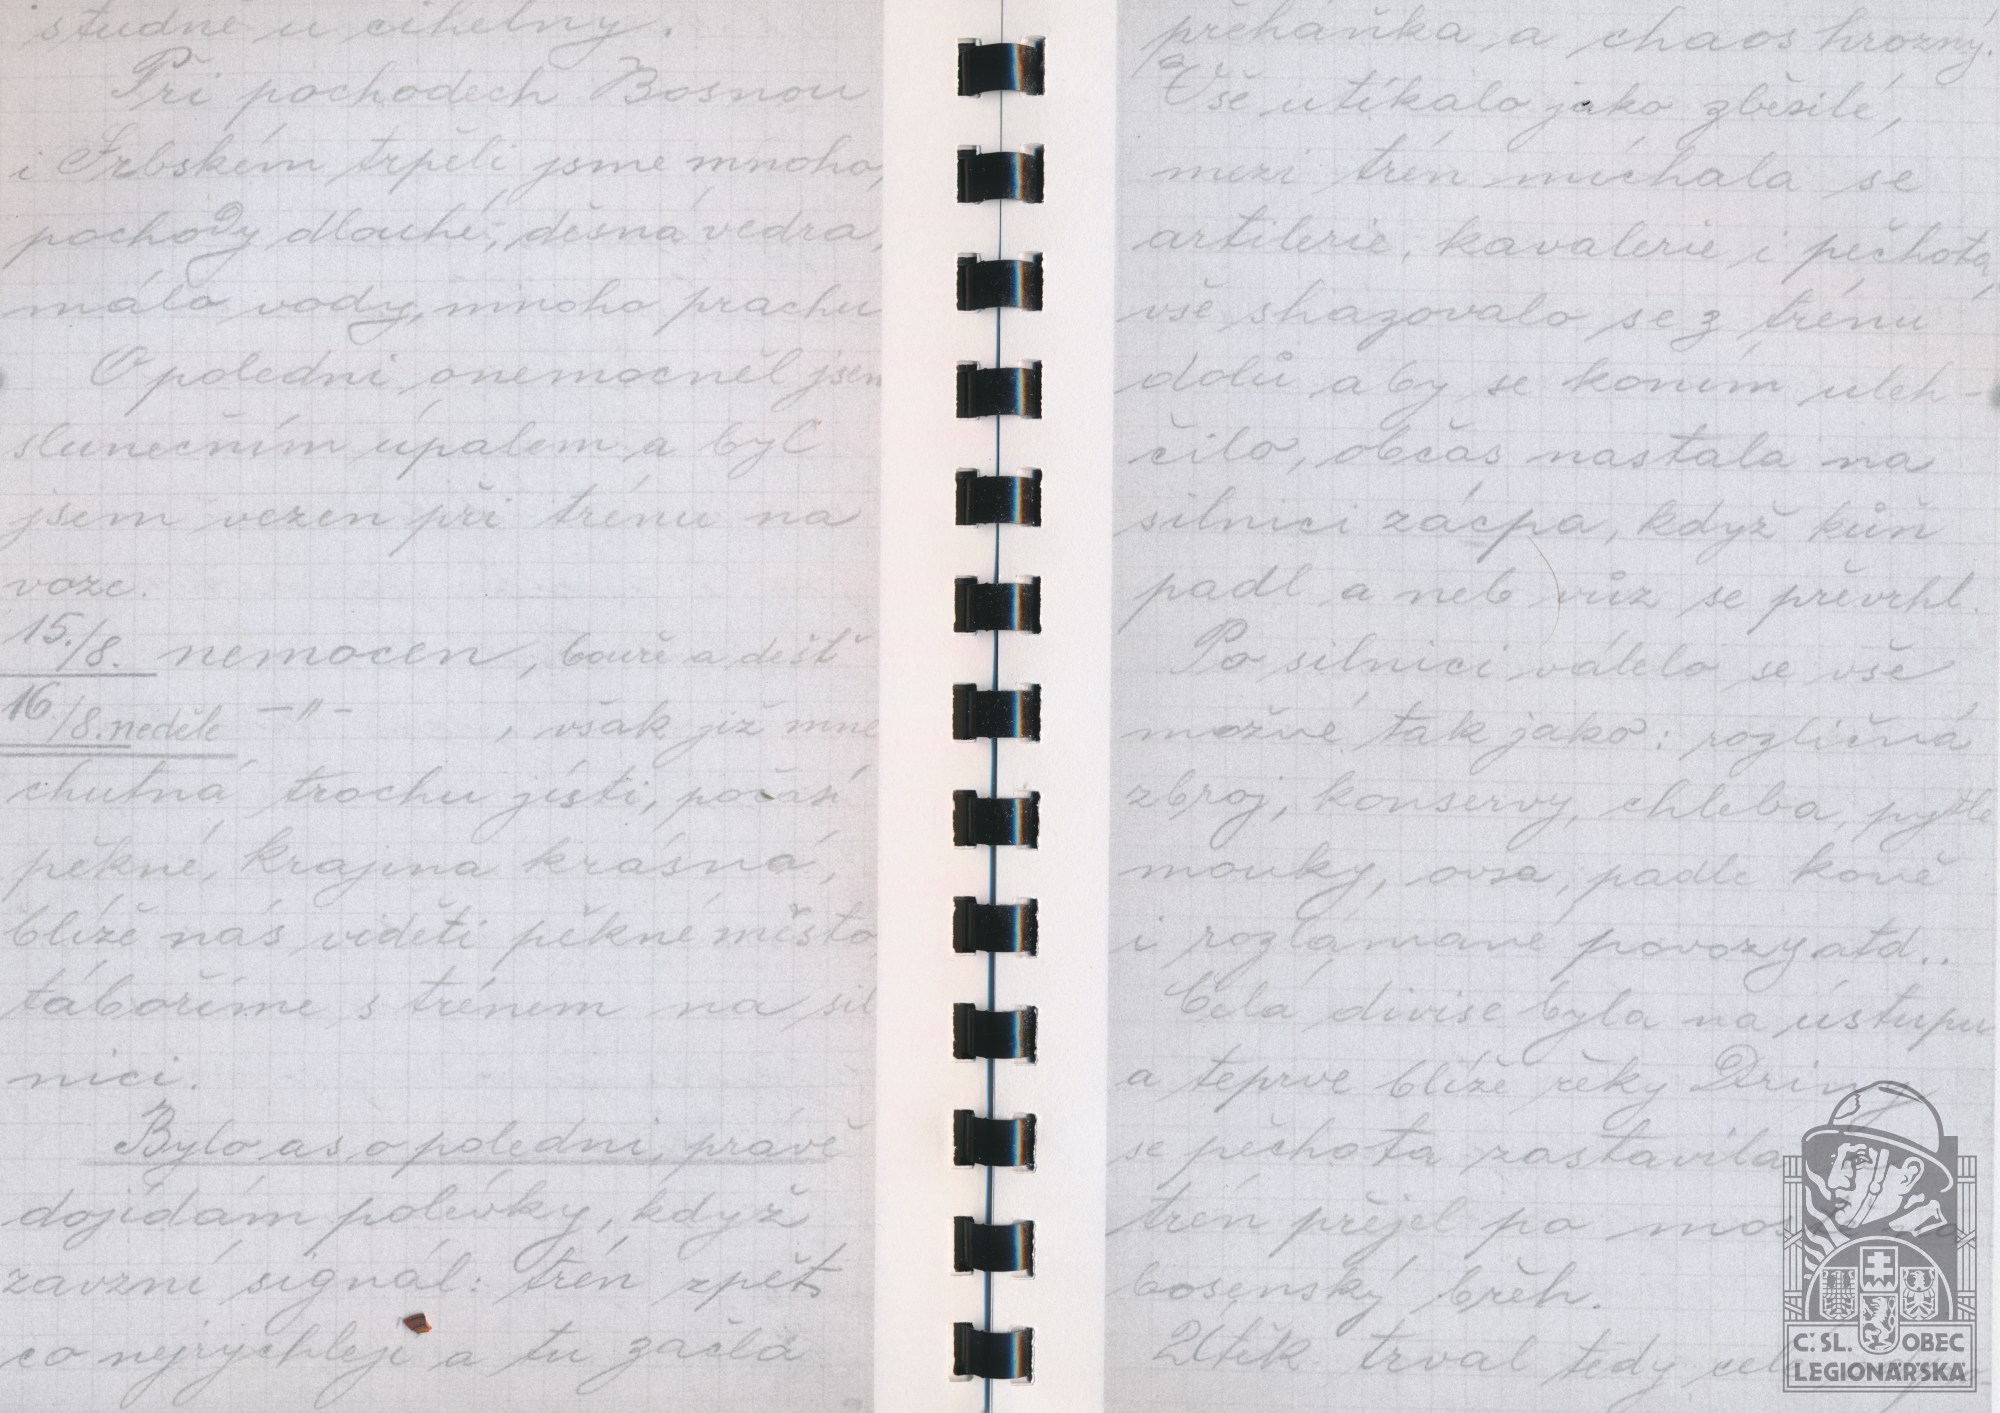 studně u cihelny.
Při pochodech Bosnou
i Srbském trpěli jsme mnoho,
pochody dlouhé, děsná vedra,
málo vody, mnoho prachu
O poledni onemocněl jsem
slunečním úpalem a byl
jsem vezen při trénu na
voze.
15./8. nemocen, bouře a déšť
16./8. neděle —"— , však již mne
chutná trochu jísti, počasí
pěkné, krajina krásná,
blíže nás viděti pěkné město,
táboříme s trénem na sil
nici.
Bylo as o poledni, právě
dojídám polévky, když
zavzní signál: trén zpět
co nejrychleji a tu začla
přeháňka a chaos hrozný.
Vše utíkalo jako zběsilé,
mezi trén míchala se
artilerie, kavalerie i pěchota,
vše shazovalo se z trénu
dolů aby se koním uleh-
čilo, občas nastala na
silnici zácpa, když kůň
padl a neb vůz se převrhl.
Po silnici válelo se vše
možné tak jako: rozličná
zbroj, konservy, chleba, pytle
mouky, ovsa, padle koně
i rozlámané povozy atd..
Celá divise byla na ústupu
a teprve blíže řěky Driny
se pěchota zastavila
trén přejel po
bosenský břeh.
Útěk trval tedy
Č. SL. OBEC
LEGIONÁŘSKÁ